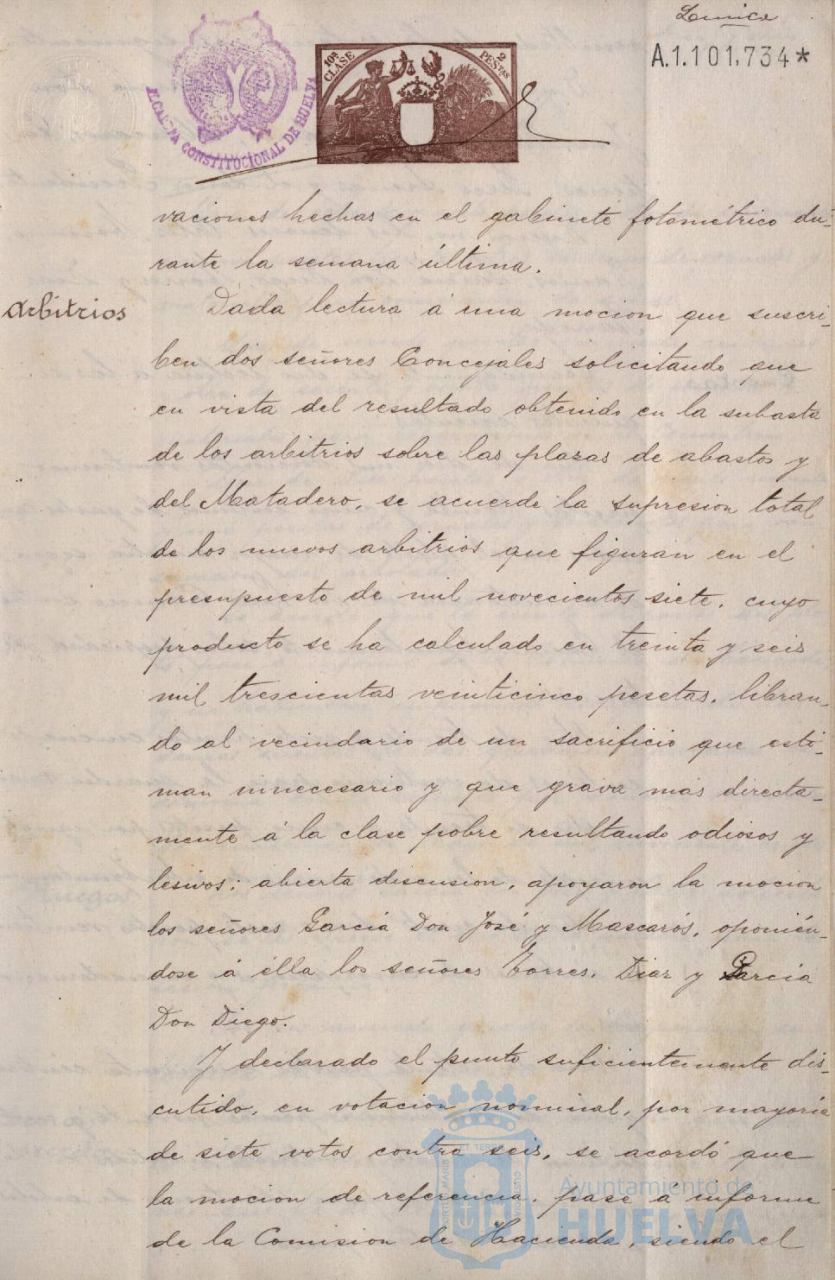 A.1.101.734*
10ª CLASE
2 PESETAS
ALCALDIA CONSTITUCIONAL DE HUELVA
vaciones hechas en el gabinete fotométrico du-
rante la semana última.
Arbitrios
Dada lectura á una mocion que suscri-
ben dos señores Concejales solicitando que
en vista del resultado obtenido en la subasta
de los arbitrios sobre las plazas de abastos y
del Matadero, se acuerde la supresion total
de los nuevos arbitrios que figuran en el
presupuesto de mil novecientos siete, cuyo
producto se ha calculado en treinta y seis
mil trescientas veinticinco pesetas, libran-
do al vecindario de un sacrificio que esti-
man innecesario y que grava mas directa-
mente á la clase pobre resultando odiosos y
lesivos; abierta discusion, apoyaron la mocion
los señores Garcia Don José y Mascarós, oponién-
dose á élla los señores Torres, Diaz y Garcia
Don Diego.
Y declarado el punto suficientemente dis-
cutido, en votacion nominal, por mayoria
de siete votos contra seis, se acordó que
la mocion de referencia, pase a informe
de la Comision de Hacienda, siendo el
Ayuntamiento de
HUELVA